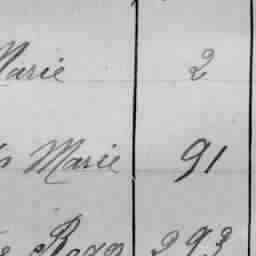 Marie 2
Marie 91
293